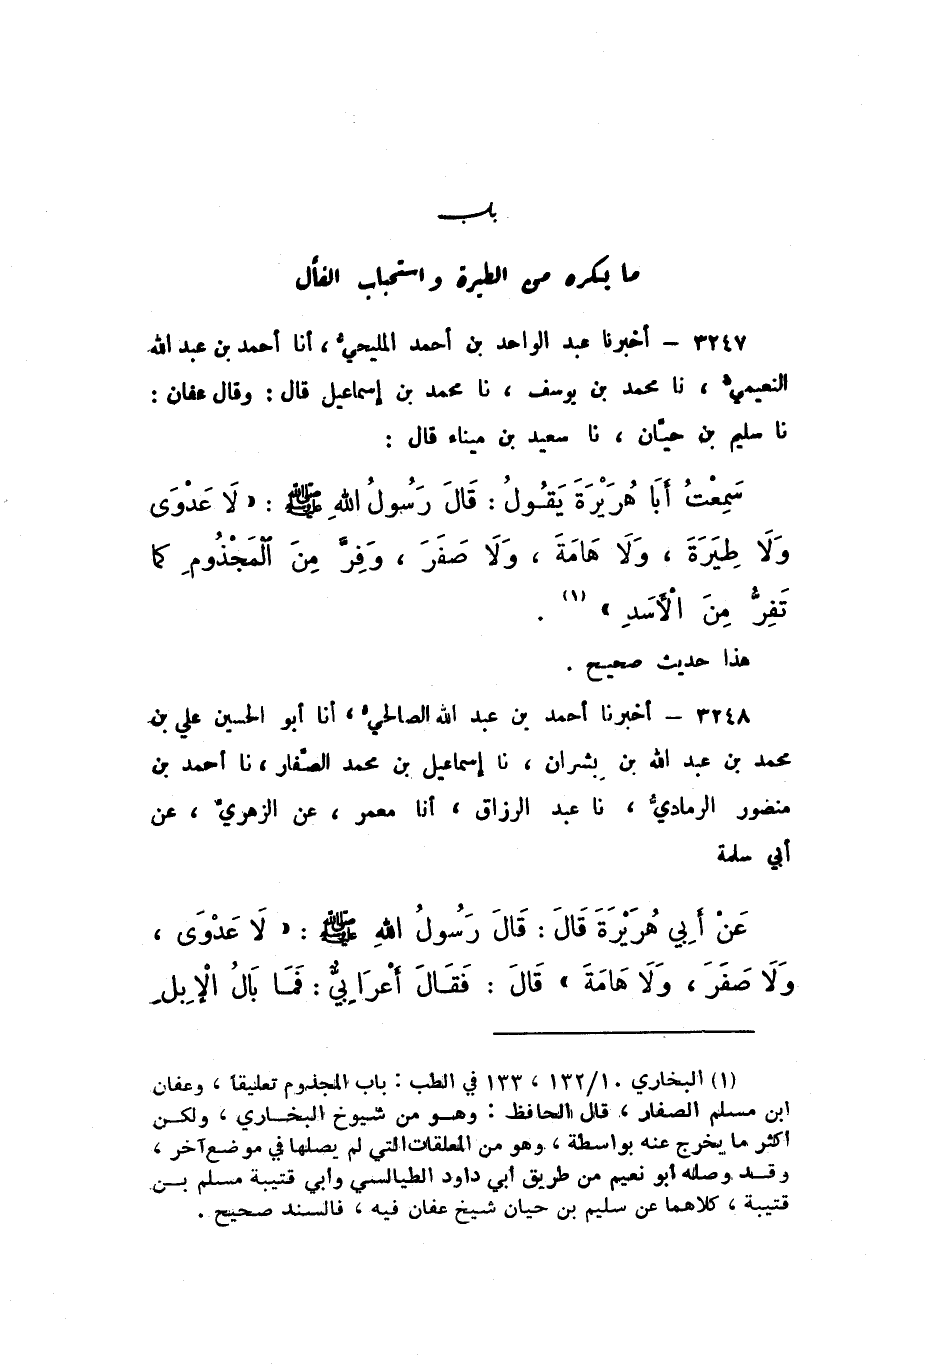 باب
ما يكره من الطيرة واستحباب الفأل
٣٢٤٧ – أخبرنا عبد الواحد بن أحمد المليحيُّ ، أنا أحمد بن عبد الله
النعيميُّ ، نا محمد بن يوسف ، نا محمد بن إسماعيل قال : وقال عفان :
نا سليم بن حيَّان ، نا سعيد بن ميناء قال :
سَمِعْتُ أَبَا هُرَيْرَةَ يَقُولُ : قَالَ رَسُولُ اللهِ ﷺ : « لَا عَدْوَى
وَلَا طِيَرَةَ ، وَلَا هَامَةَ ، وَلَا صَفَرَ ، وَفِرَّ مِنَ الْمَجْذُومِ كَمَا
تَفِرُّ مِنَ الْأَسَدِ » (١) .
هذا حديث صحيح .
٣٢٤٨ – أخبرنا أحمد بن عبد الله الصالحيُّ ، أنا أبو الحسين علي بن
محمد بن عبد الله بن بشران ، نا إسماعيل بن محمد الصَّفار ، نا أحمد بن
منصور الرماديُّ ، نا عبد الرزاق ، أنا معمر ، عن الزهريِّ ، عن
أبي سلمة
عَنْ أَبِي هُرَيْرَةَ قَالَ : قَالَ رَسُولُ اللهِ ﷺ : « لَا عَدْوَى ،
وَلَا صَفَرَ ، وَلَا هَامَةَ » قَالَ : فَقَالَ أَعْرَابِيٌّ : فَمَا بَالُ الْإِبِلِ
(١) البخاري ١٣٢/١٠ ، ١٣٣ في الطب : باب المجذوم تعليقاً ، وعفان
ابن مسلم الصفار ، قال الحافظ : وهو من شيوخ البخاري ، ولكن
أكثر ما يخرج عنه بواسطة ، وهو من المعلقات التي لم يصلها في موضع آخر ،
وقد وصله أبو نعيم من طريق أبي داود الطيالسي وأبي قتيبة مسلم بن
قتيبة ، كلاهما عن سليم بن حيان شيخ عفان فيه ، فالسند صحيح .